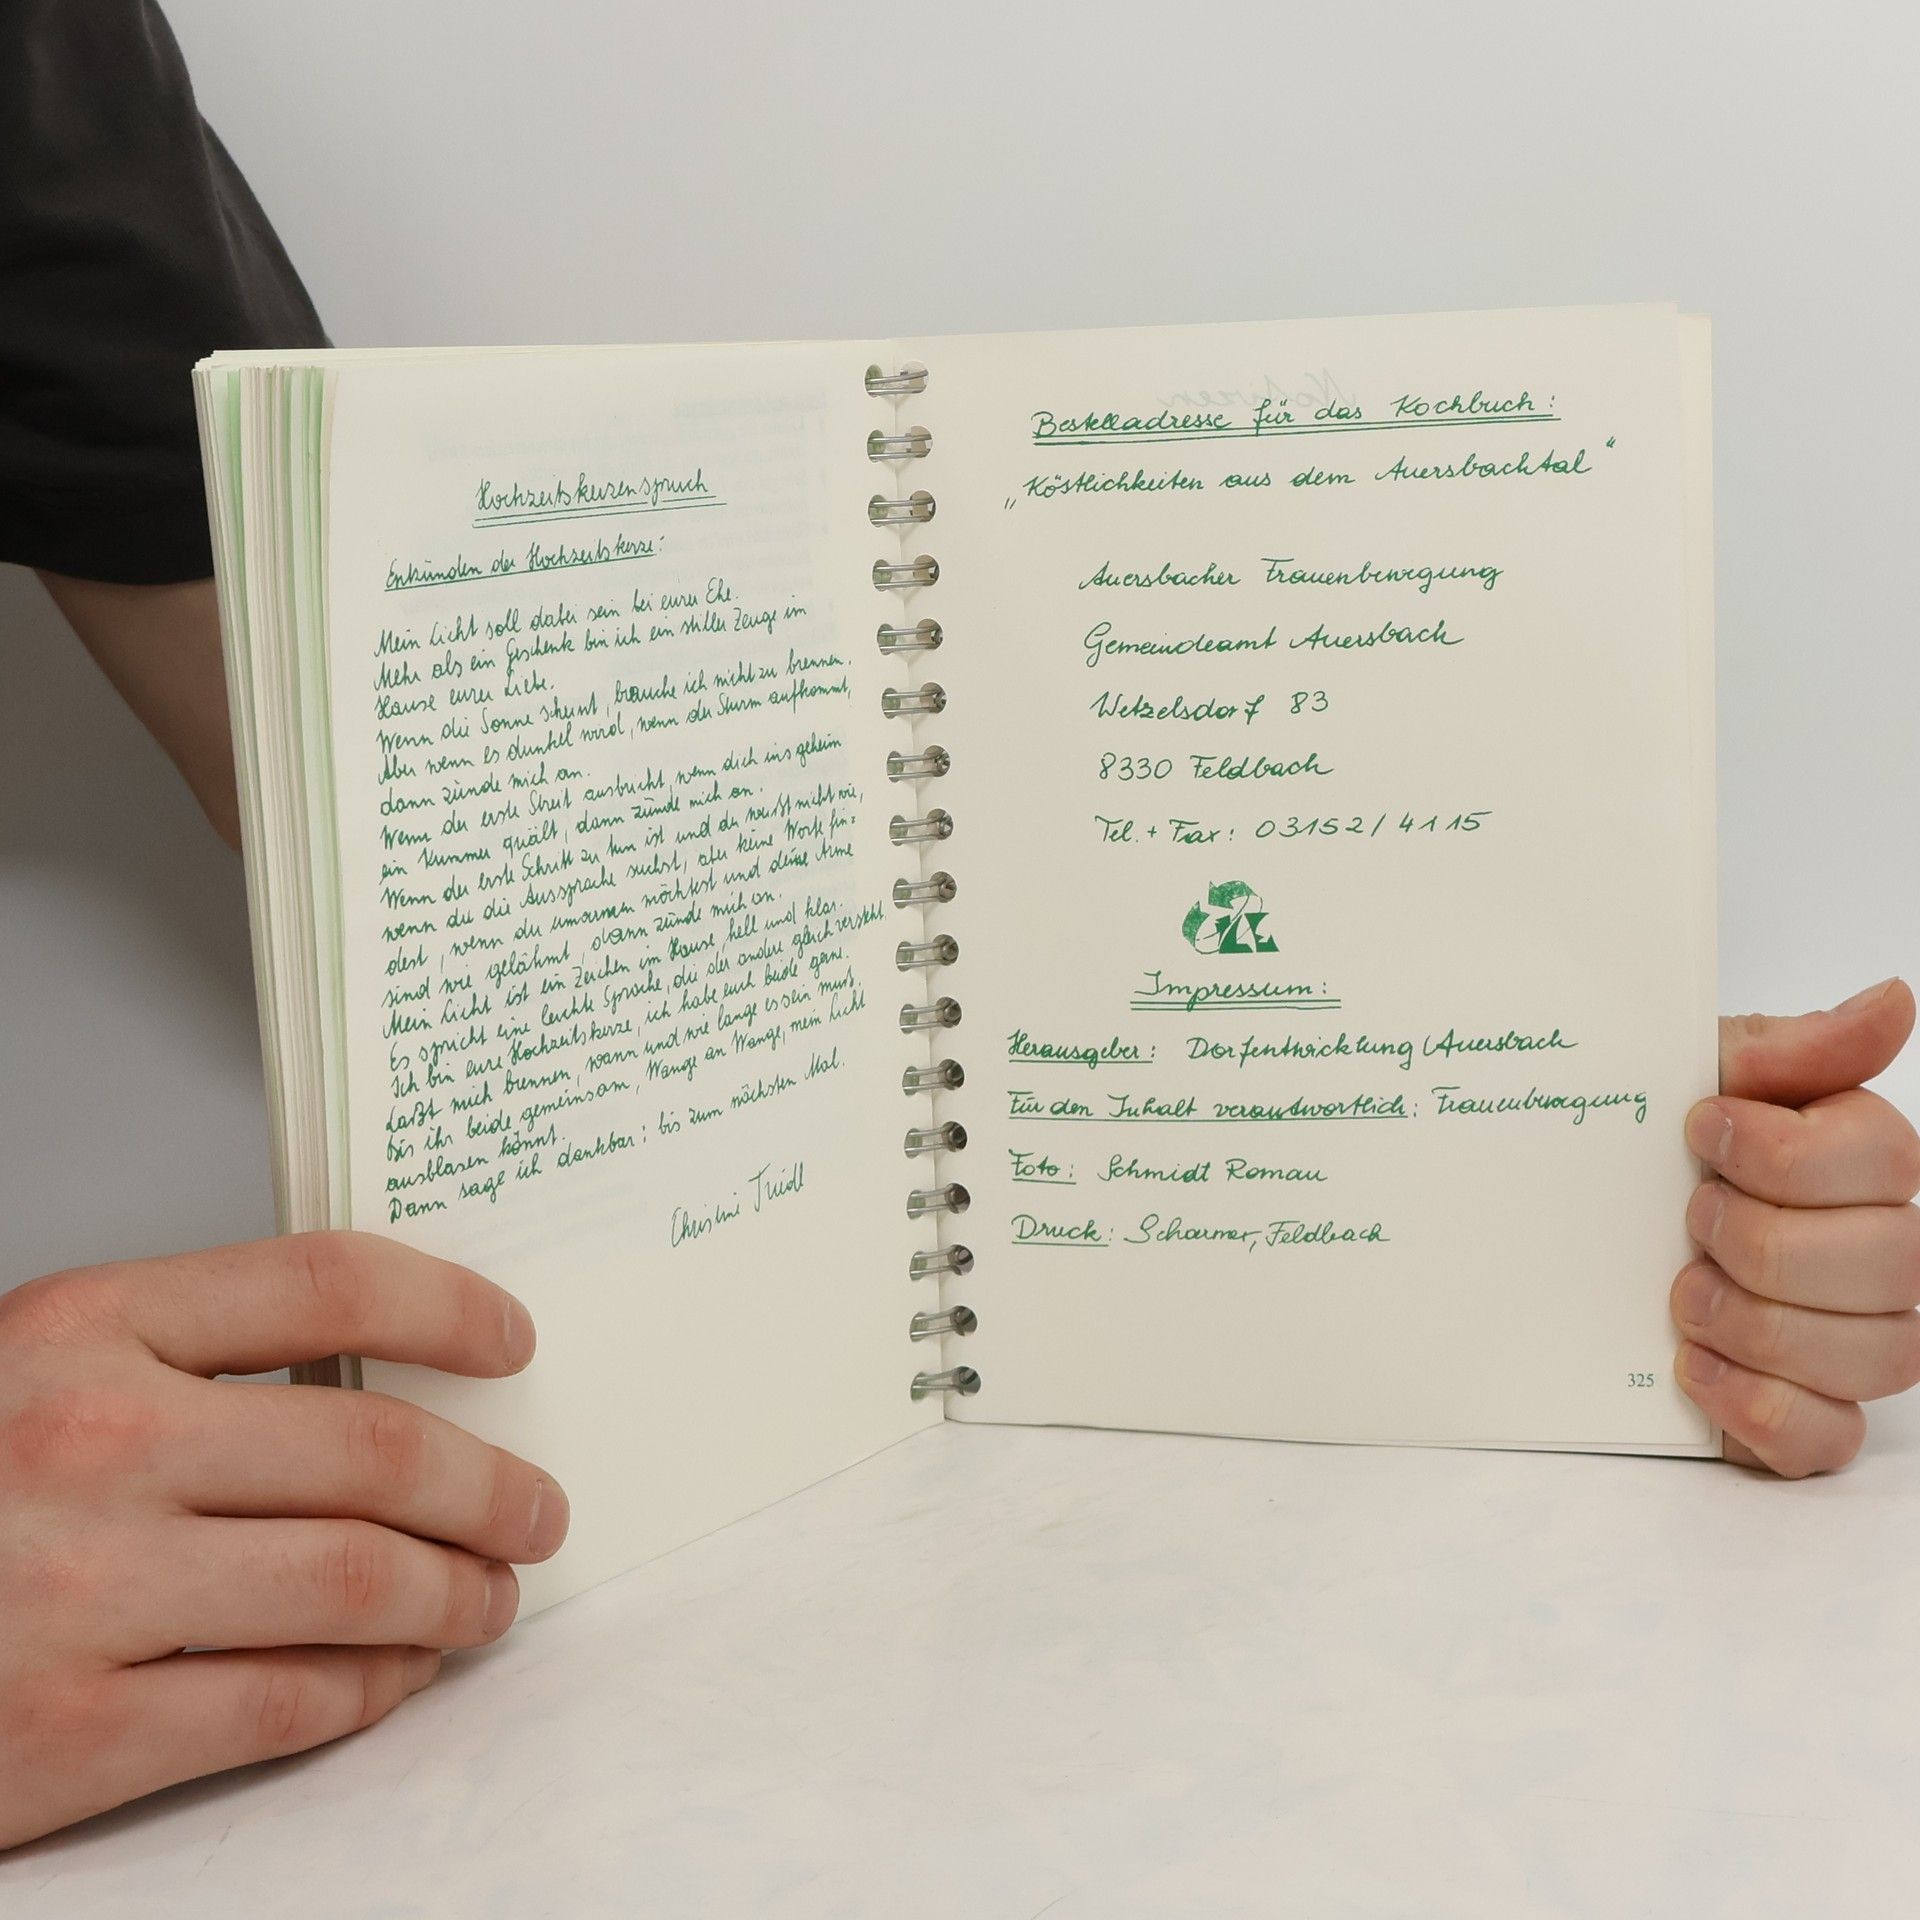 Hochzeitskerzenspruch
Entzünden der Hochzeitskerze:
Mein Licht soll dabei sein bei eurer Ehe.
Mehr als ein Geschenk bin ich ein stiller Zeuge im
Hause eurer Liebe.
Wenn die Sonne scheint, brauche ich nicht zu brennen.
Aber wenn es dunkel wird, wenn der Sturm aufkommt,
dann zünde mich an.
Wenn der erste Streit ausbricht, wenn dich insgeheim
ein Kummer quält, dann zünde mich an.
Wenn der erste Schritt zu tun ist und du weißt nicht wie,
wenn du die Aussprache suchst, aber keine Worte fin=
dest, wenn du umarmen möchtest und deine Arme
sind wie gelähmt, dann zünde mich an.
Mein Licht ist ein Zeichen im Hause, hell und klar.
Es spricht eine leichte Sprache, die der andere gleich versteht.
Ich bin eure Hochzeitskerze, ich habe euch beide gerne.
Laßt mich brennen, wann und wie lange es sein muß.
Bis ihr beide gemeinsam, Wange an Wange, mein Licht
ausblasen könnt.
Dann sage ich dankbar: bis zum nächsten Mal.
Christine Triedl
Notizen
Bestelladresse für das Kochbuch:
„Köstlichkeiten aus dem Auersbachtal“
Auersbacher Frauenbewegung
Gemeindeamt Auersbach
Wetzelsdorf 83
8330 Feldbach
Tel. + Fax: 03152/4115
Impressum:
Herausgeber: Dorfentwicklung Auersbach
Für den Inhalt verantwortlich: Frauenbewegung
Foto: Schmidt Roman
Druck: Scharmer, Feldbach
325